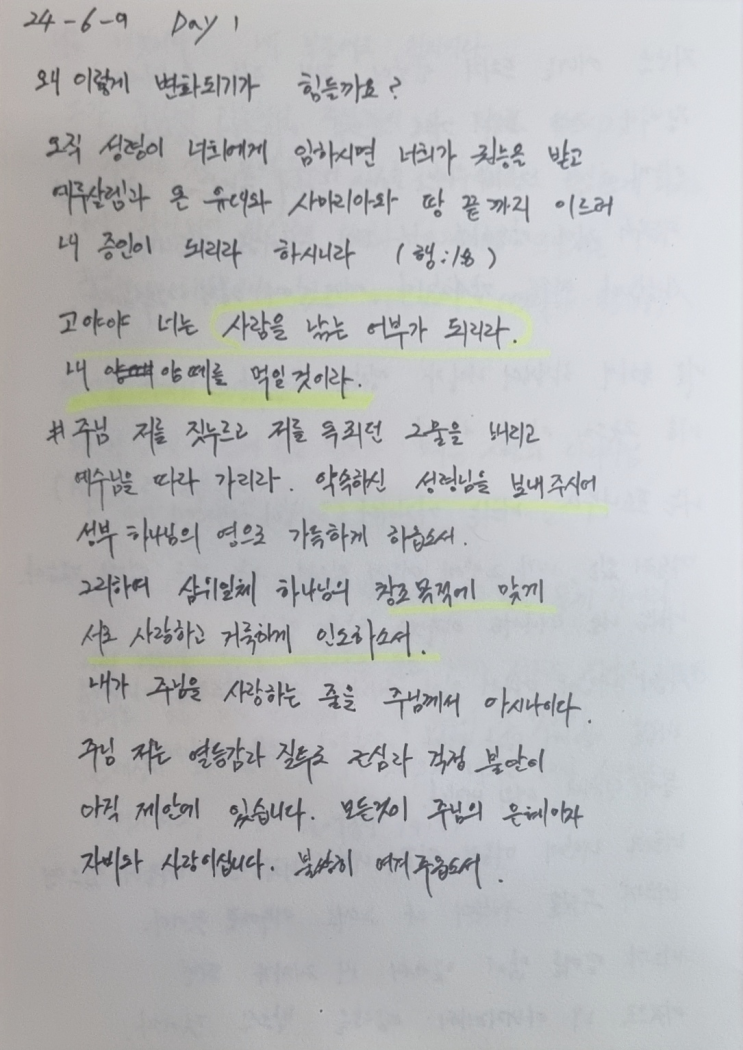 24-6-9 Day 1
왜 이렇게 변화되기가 힘든까요?
오직 성령이 너희에게 임하시면 너희가 권능을 받고
예루살렘과 온 유대와 사마리아와 땅 끝까지 이르러
내 증인이 되리라 하시니라 (행:1:8)
고야야 너는 사람을 낚는 어부가 되리라.
내 양떼를 먹일것이라.
# 주님 저를 짓누르고 저를 옥죄던 그물을 버리고
예수님을 따라 가리라. 약속하신 성령님을 보내주시어
성부 하나님의 영으로 가득하게 하옵소서.
그리하여 삼위일체 하나님의 창조목적에 맞게
서로 사랑하고 거룩하게 인도하소서.
내가 주님을 사랑하는 줄을 주님께서 아시나이다.
주님 저는 열등감과 질투로 근심과 걱정 불안이
아직 제안에 있습니다. 모든것이 주님의 은혜이자
자비와 사랑이십니다. 불쌍히 여겨주옵소서.